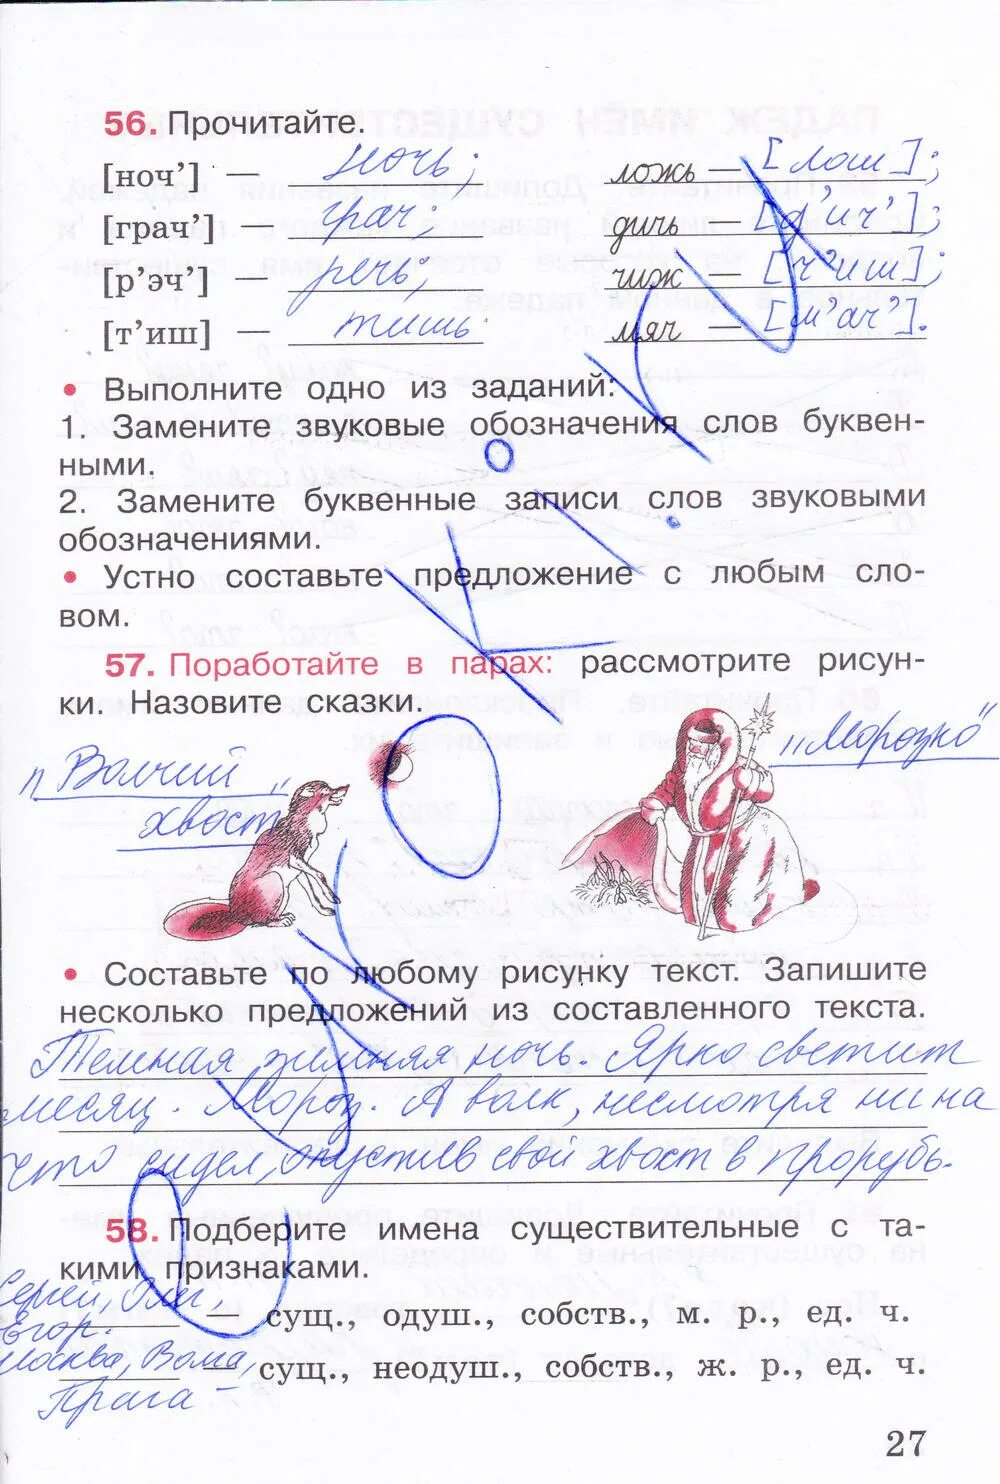 56. Прочитайте.
[ноч'] — ночь; ложь — [лош];
[грач'] — грач; дичь — [д'ич'];
[р'эч'] — речь; чиж — [ч'иш];
[т'иш] — тишь. мяч — [м'ач'].
• Выполните одно из заданий:
1. Замените звуковые обозначения слов буквен-
ными.
2. Замените буквенные записи слов звуковыми
обозначениями.
• Устно составьте предложение с любым сло-
вом.
57. Поработайте в парах: рассмотрите рисун-
ки. Назовите сказки.
„Морозко"
„Волчий
хвост"
• Составьте по любому рисунку текст. Запишите
несколько предложений из составленного текста.
Темная зимняя ночь. Ярко светит
месяц. Мороз. А волк, несмотря ни на
что сидел, опустив свой хвост в прорубь.
58. Подберите имена существительные с та-
кими признаками.
Сергей, Олег,
Егор. — сущ., одуш., собств., м. р., ед. ч.
Москва, Волга, — сущ., неодуш., собств., ж. р., ед. ч.
Прага –
27